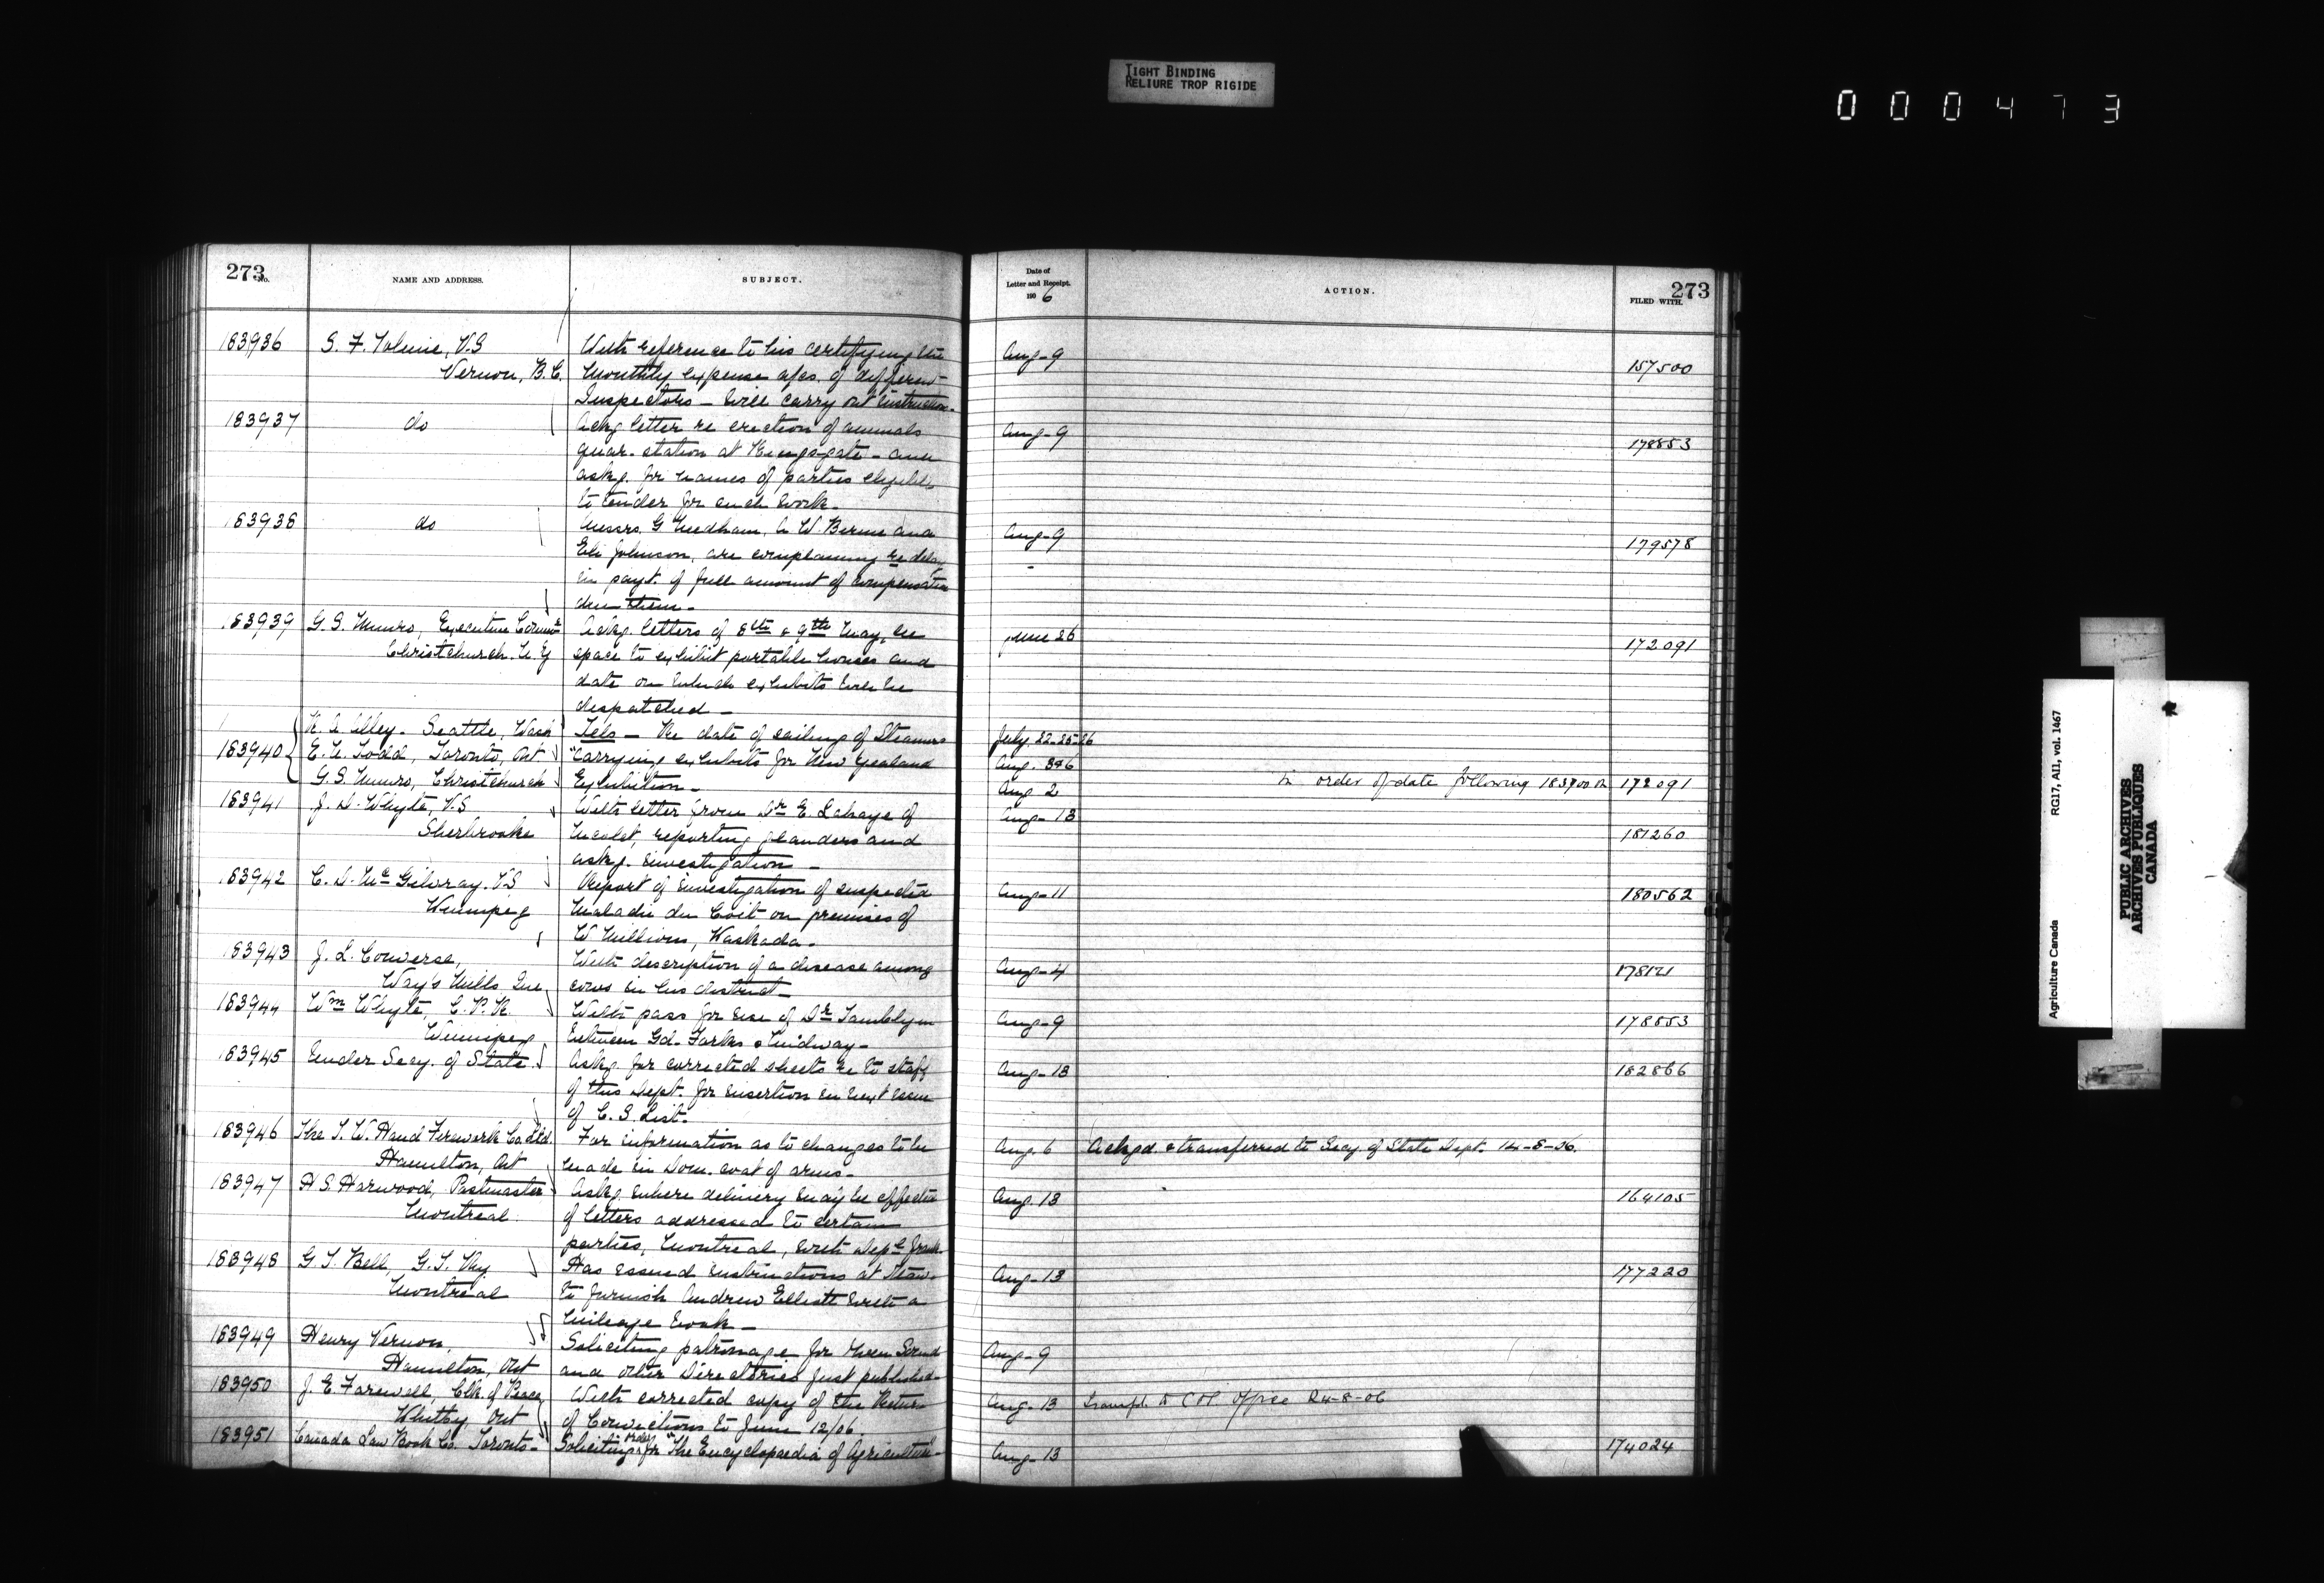 TIGHT BINDING
RELIURE TROP RIGIDE
000473
273
No.
NAME AND ADDRESS.
SUBJECT.
183936
S. F. Tolmie, V.S
Vernon, B.C.
With reference to his certifying the
Monthly expense a/cs. of different
Inspectors – Will carry out instruction.
183937
do
Ackg letter re erection of animals
quar. station at Kingsgate – and
askg. for names of parties eligible
to tender for such work.
183938
do
Messrs. G Needham, A. W. and
Eli Johnson, are complaining re delay
in payt. of full amount of compensation
due them.
183939
G. S. Munro, Executive Commr
Christchurch. N. Z
Ackg. letters of 8th & 9th May, re
space to exhibit portable houses and
date on which exhibits will be
despatched –
183940
Alley. Seattle, Wash
E. Todd, Toronto, Ont
G. S. Munro, Christchurch
Tels – Re date of sailing of Steamers
Carrying exhibits for New Zealand
Exhibition.
183941
J. D. Whyte, V.S
Sherbrooke
With letter from Dr E. Lahaye of
Nicolet, reporting glanders and
askg. investigation –
183942
C. D. McGilvray. V.S
Winnipeg
Report of investigation of suspected
Maladie du Coit on premises of
W Millions, Waskada.
183943
J. L. Converse,
Way's Mills Que
With description of a disease among
cows in his district –
183944
Wm Whyte, C. P. R.
Winnipeg
With pass for use of Dr Tamblyn
between Gd. Forks & Midway –
183945
Under Secy. of State
Askg. for corrected sheets re to staff
of this Dept. for insertion in next issue
of C. S. List.
183946
The T. W. Hand Firework Co. Ltd.
Hamilton, Ont
For information as to changes to be
made in Dom. coat of arms.
183947
H S. Harwood, Postmaster
Montreal
Askg. where delivery may be effected
of letters addressed to certain
parties, Montreal, with Deptl frank
183948
G. T. Bell, G. T. Ry
Montreal
Has issued instructions at
to furnish Andrew Elliott with a
Mileage book –
183949
Henry Vernon,
Hamilton, Ont
Soliciting patronage for Owen Sound
and other Directories just published.
183950
J. E. Farewell, Clk. of Peace
Whitby Ont
With corrected copy of the Return
of Convictions to June 12/06.
183951
Canada Law Book Co. Toronto –
Soliciting order for "The Encyclopaedia of Agriculture"
Date of
Letter and Receipt.
1906
ACTION.
273
FILED WITH.
Aug–9
157500
Aug–9
178853
Aug–9
179578
June 26
172091
July 22–25–26
Aug. 3&6
Aug 2
In order of date following 183900
172091
Aug–13
181260
Aug–11
180562
Aug–4
178121
Aug–9
178853
Aug–13
182866
Aug. 6
Ackgd. & transferred to Secy. of State Dept. 14–8–06.
Aug. 13
164105
Aug–13
177220
Aug–9
Aug. 13
Transfd. to Office 24–8–06
Aug–13
174024
Agriculture Canada
RG17, AII, vol. 1467
PUBLIC ARCHIVES
ARCHIVES PUBLIQUES
CANADA